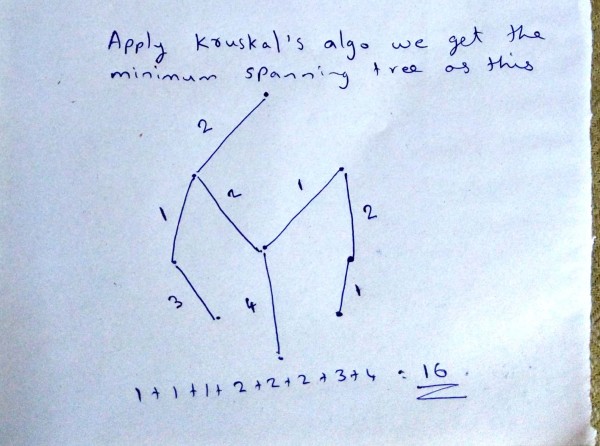 Apply Kruskal's algo we get the
minimum spanning tree as this
2
1 2 1 2
3 4 1
1+1+1+2+2+2+3+4 = 16